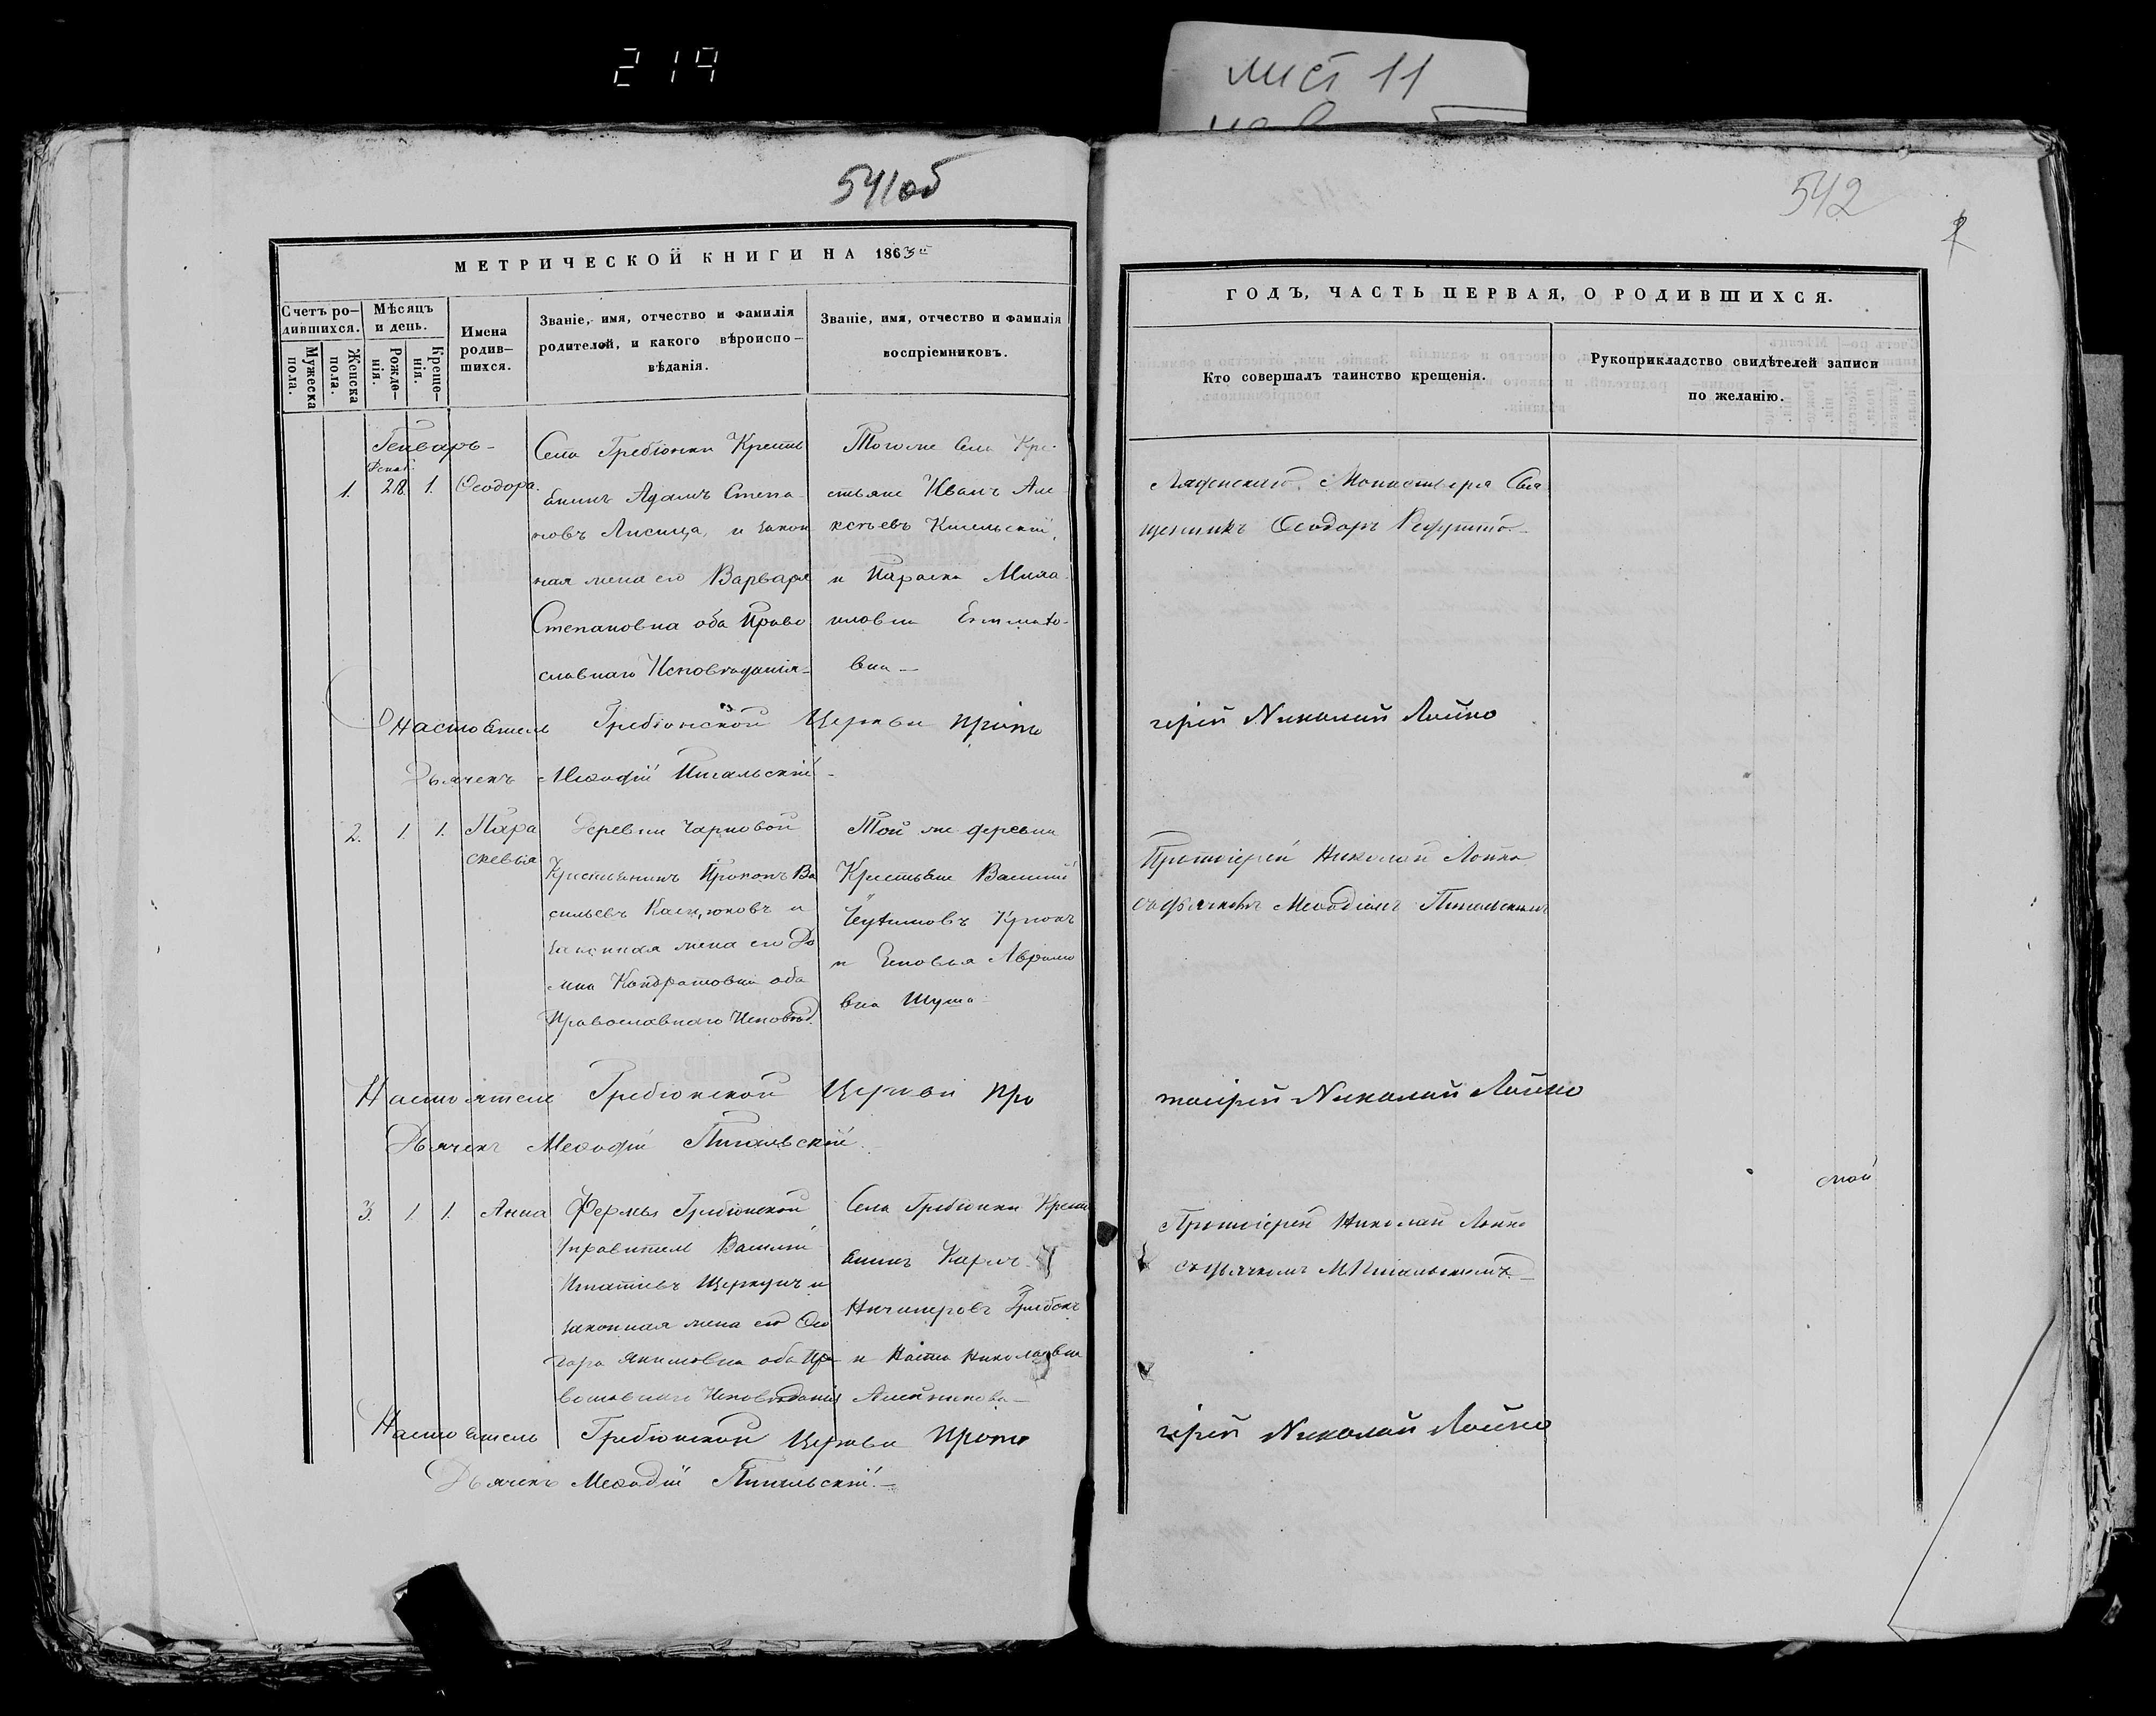 219
лист 11
541об
542
МЕТРИЧЕСКОЙ КНИГИ НА 1863й
Счетъ ро-
дившихся.
Мужеска
пола.
Женска
пола.
Мѣсяцъ
и день.
Рожде-
нія.
Креще-
нія.
Имена
родив-
шихся.
Званіе, имя, отчество и фамилія
родителей, и какого вѣроиспо-
вѣданія.
Званіе, имя, отчество и фамилія
воспріемниковъ.
ГОДЪ, ЧАСТЬ ПЕРВАЯ, О РОДИВШИХСЯ.
Кто совершалъ таинство крещенія.
Рукоприкладство свидѣтелей записи
по желанію.
Генварь-
Декаб.
1. 28. 1. Ѳеодора.
Села Гребіонки Кресть
янинъ Адамъ Степа-
новъ Лисица, и закон
ная жена его Варвара
Степановна оба Право
славнаго Исповѣданія-
Тогоже Села Кре-
стьяне Иванъ Але
ксѣевъ
и Параска Миха
иловна
вна-
Ляденскаго Монастыря Свя
щенникъ Ѳеодоръ
Настоятель Гребіонской Церкви прото
іерей Николай Лойко
Дьячекъ Меѳодій Пигальскій-
2. 1. 1. Пара
скевія
Деревни Чарновой
Крестьянинъ Прокопъ Ва
сильевъ и
законная жена его До
мна Кондратовна оба
Православнаго Исповѣд.
Той же деревни
Крестьяне Василій
Крюкъ
и Зеновья Аврамо
вна Шума
Протоіерей Николай Лойко
съ дьячкомъ Меѳодіемъ Пигальскимъ
Настоятель Гребіонской Церкви про
тоіерей Николай Лойко
Дьячекъ Меѳодій Пигальскій.
3. 1. 1. Анна
Фермы Гребіонской
Управитель Василій
Игнатіевъ и
законная жена его Ѳео
дора Якимовна оба Пра-
вославнаго Исповѣданія
Села Гребіонки Кресть
янинъ Карпъ
Ничипоровъ Грибокъ
и Настa Николаевна
Алейникова-
Протоіерей Николай Лойко
съ дьячкомъ М. Пигальскимъ-
Настоятель Гребіонской Церкви прото
іерей Николай Лойко
Дьячекъ Меѳодій Пигальскій.-